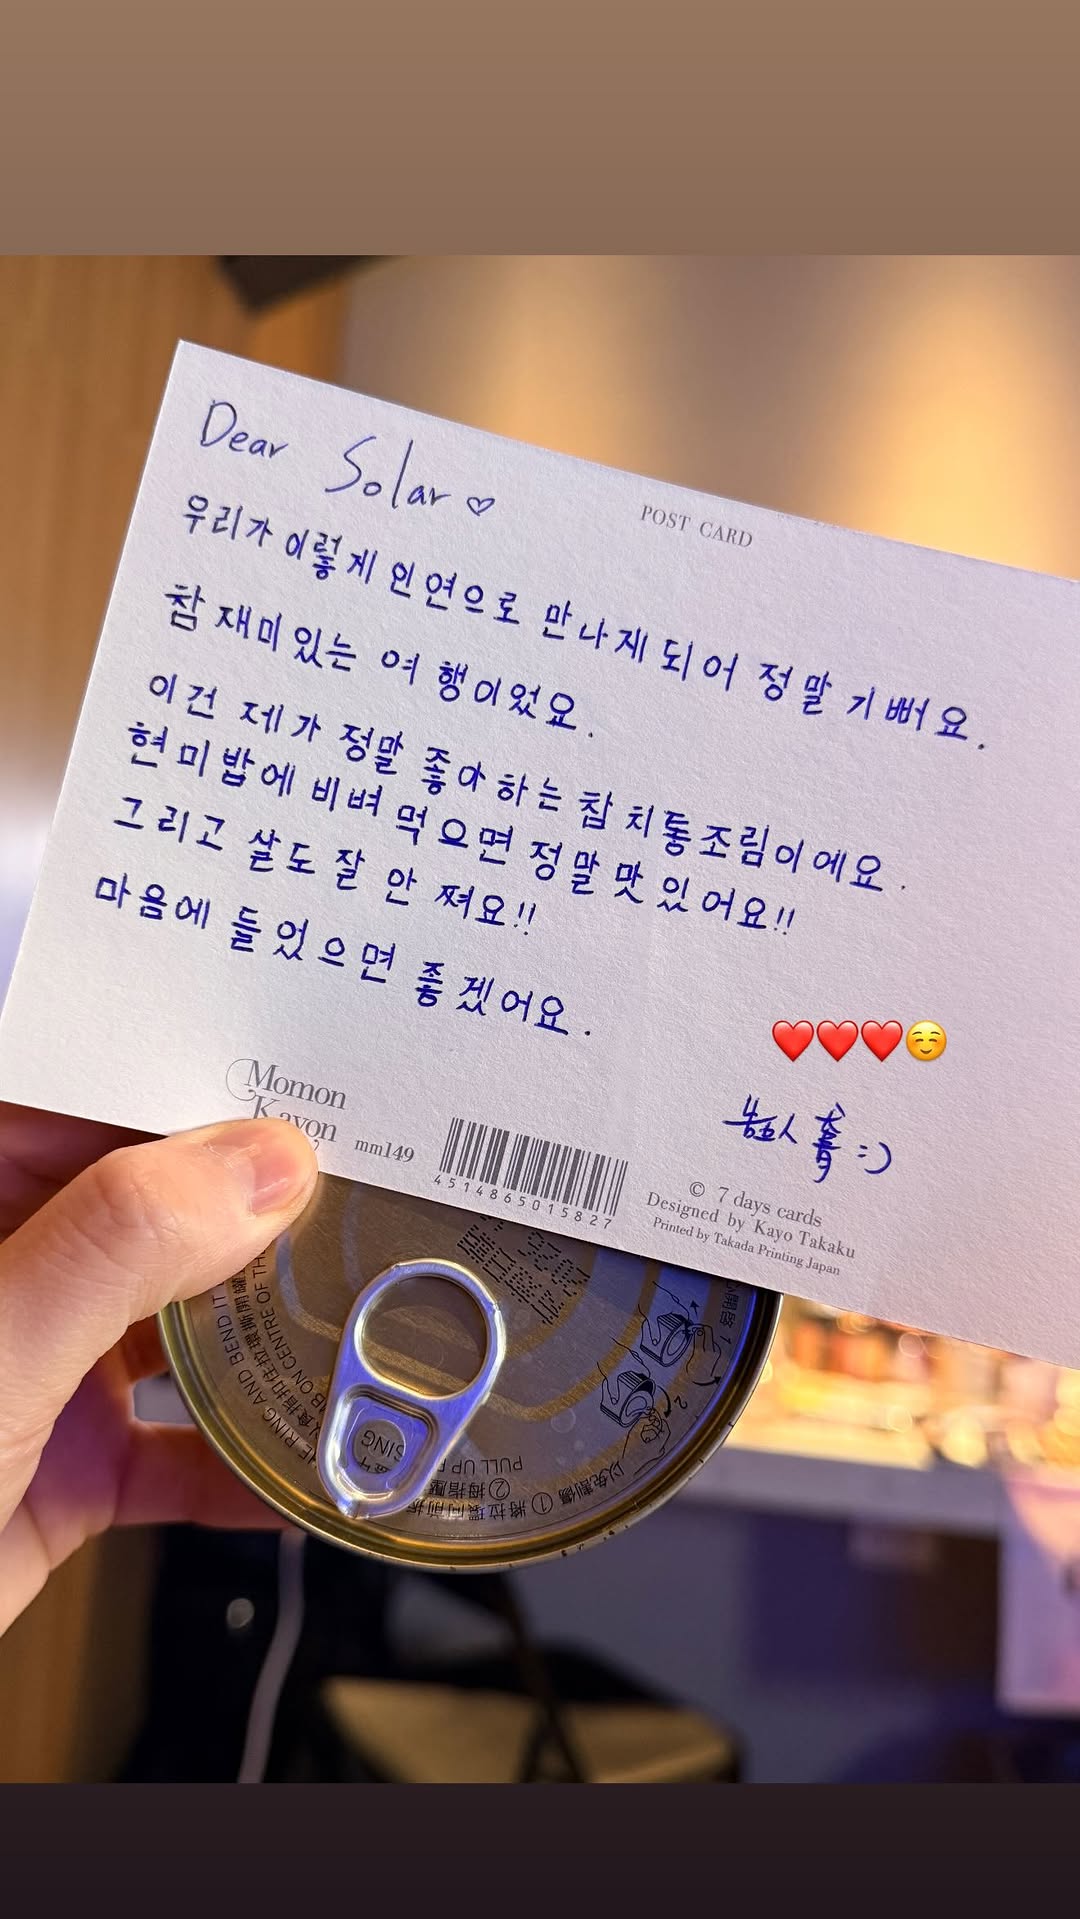 Dear Solar ♡
POST CARD
우리가 이렇게 인연으로 만나게 되어 정말 기뻐요.
참 재미있는 여행이었요.
이건 제가 정말 좋아하는 참치통조림이에요.
현미밥에 비벼 먹으면 정말 맛있어요!!
그리고 살도 잘 안 쪄요!!
마음에 들었으면 좋겠어요.
❤️❤️❤️☺️
:)
Momon
Kayon
mm149
4514865015827
© 7 days cards
Designed by Kayo Takaku
Printed by Takada Printing Japan
RING AND BEND IT
ON CENTRE OF TH
PULL UP
① 將拉環向前扳
② 拇指壓
以免割傷
1
2